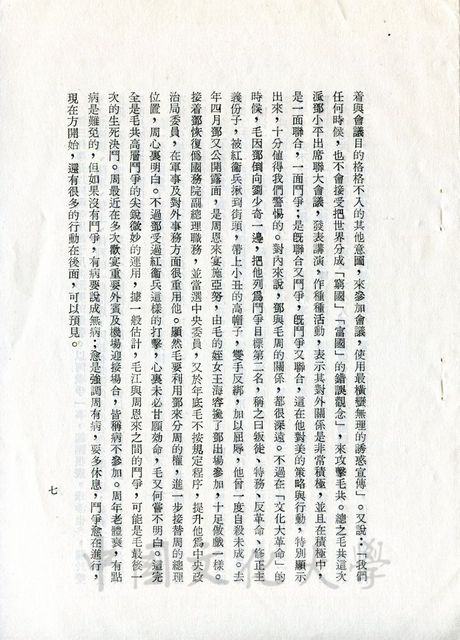 着與會議目的格格不入的其他意圖，來參加會議，使用最橫蠻無理的誘惑宣傳」。又說：「我們
任何時候，也不會接受把世界分成「窮國」「富國」的錯誤觀念」，來攻擊毛共。總之毛共這次
派鄧小平出席聯大會議，發表講演，作種種活動，表示其對外關係是非常積極，並且在積極中，
是一面聯合，一面鬥爭；是旣聯合又鬥爭，旣鬥爭又聯合，這在他對美的策略與行動，特別顯示
出來，十分值得我們警惕的。對內來說，鄧與毛周的關係，都很深遠。不過在「文化大革命」的
時候，毛因鄧倒向劉少奇一邊，把他列爲鬥爭目標第二名，稱之曰叛徒、特務、反革命、修正主
義份子，被紅衞兵揪到街頭，帶上小丑的高帽子，雙手反綁，加以屈辱，他曾一度自殺未成。去
年四月鄧又公開露面，是周恩來宴施亞努，由毛的姪女王海容攙了鄧出場參加，十足做戲一樣。
接着鄧恢復僞國務院副總理職務，並當選中央委員，又於年底毛不按規定程序，提升他爲中央政
治局委員，在軍事及對外事務方面很重用他。顯然毛要利用鄧來分周的權，進一步接替周的總理
位置，周心裏明白。不過鄧受過紅衞兵這樣的打擊，心裏未必甘願効命，毛又何嘗不明白。這完
全是毛共高層鬥爭的尖銳微妙的運用，據一般估計，毛江與周恩來之間的鬥爭，可能是毛最後一
次的生死決鬥。周最近在多次歡宴重要外賓及機場迎接場合，皆稱病不參加。周年老體衰，有點
病是難免的，但如果沒有鬥爭，有病要說成無病；愈是強調周有病，要多休息，鬥爭愈在進行，
現在方開始，還有很多的行動在後面，可以預見。
七
中國文化大學